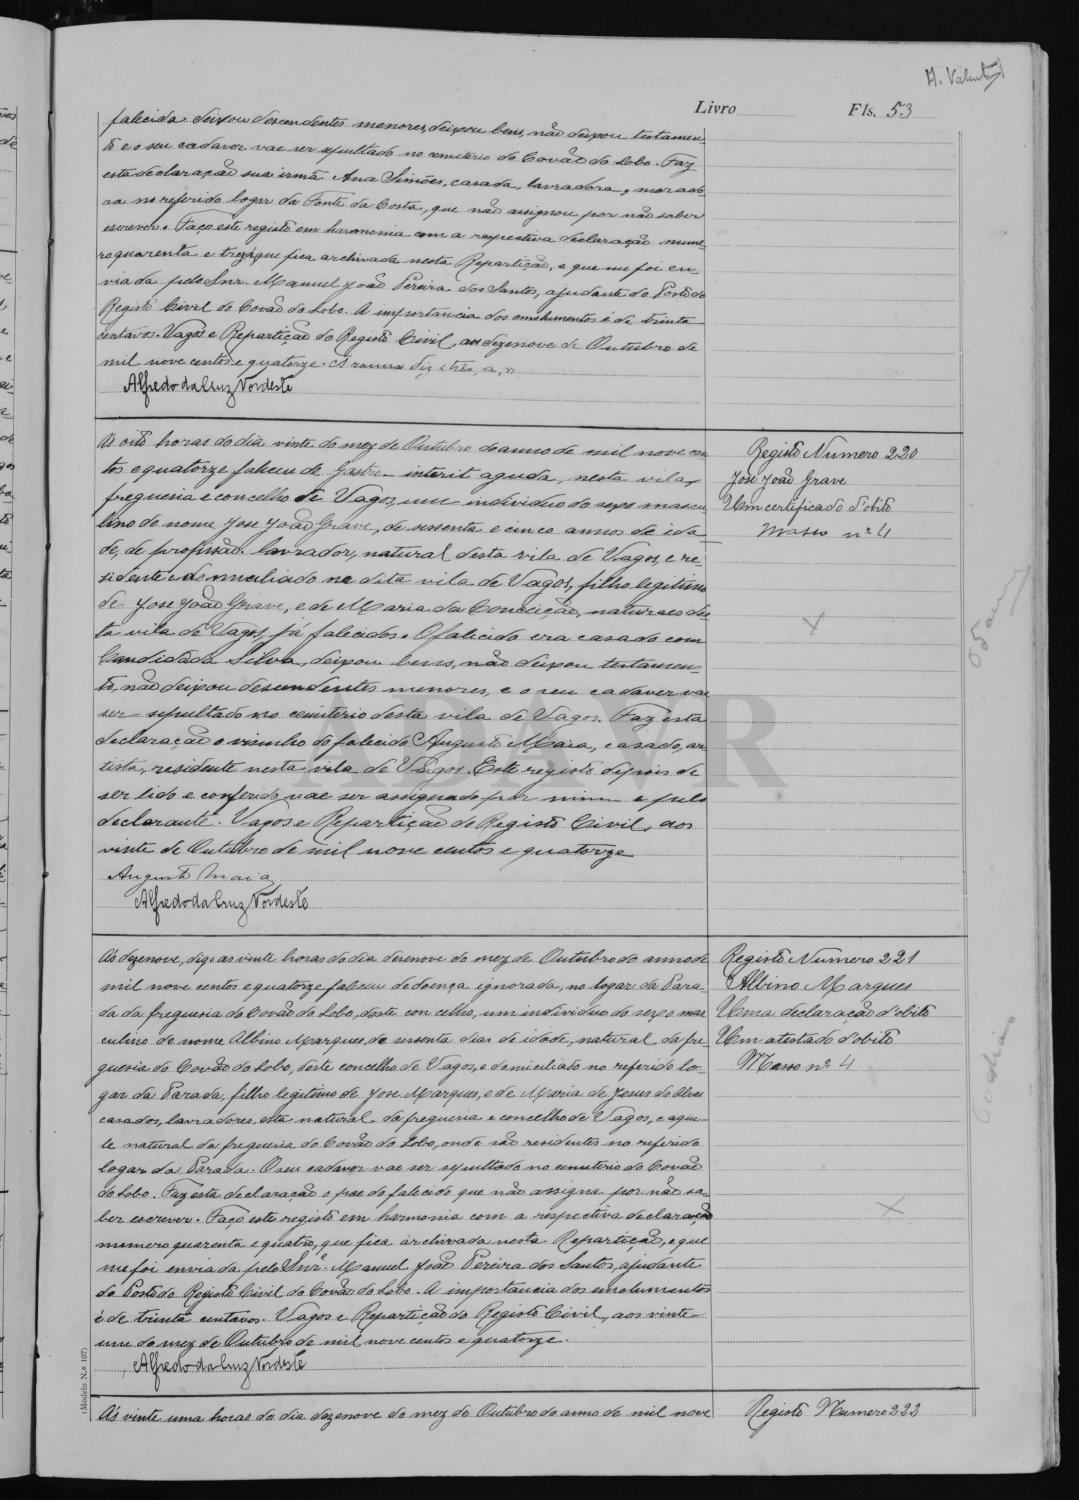 H. Valente
Livro Fls. 53
falecida deixou descendentes menores, deixou bens, não deixou testamen-
to e o seu cadaver vae ser sepultado no cemiterio do Covão do Lobo. Faz
esta declaração sua irmã Ana Simões, casada, lavradora, morado-
ra no referido logar da Fonte da Costa, que não assignou por não saber
escrever. Faço este registo em harmonia com a respectiva declaração nume-
ro quarenta e trez, que fica archivada nesta Repartição, e que me foi en-
viada pelo Snr. Manuel João Pereira dos Santos, ajudante do Posto do
Registo Civil do Covão do Lobo. A importancia dos emolumentos é de trinta
centavos. Vagos e Repartição do Registo Civil, aos dezenove de Outubro de
mil nove centos e quatorze. diz três, a, n
Alfredo da Cruz Nordeste
Ás oito horas do dia vinte do mez de Outubro do anno de mil nove cen-
tos e quatorze faleceu de gastro-interit aguda, nesta vila,
freguesia e concelho de Vagos, um individuo do sexo mascu-
lino de nome Jose João Grave, de sessenta e cinco annos de ida-
de, de profissão lavrador, natural desta vila de Vagos, e re-
sidente e domiciliado na dita vila de Vagos, filho legitimo
de Jose João Grave, e de Maria da Conceição, naturaes des-
ta vila de Vagos, já falecidos. O falecido era casado com
Candida da Silva, deixou bens, não deixou testamen-
to, não deixou descendentes menores, e o seu cadaver vae
ser sepultado no cemiterio desta vila de Vagos. Faz esta
declaração o visinho do falecido Augusto Maia, casado, ar-
tista, residente nesta vila de Vagos. Este registo depois de
ser lido e conferido vae ser assignado por mim e pelo
declarante. Vagos e Repartição do Registo Civil, aos
vinte de Outubro de mil nove centos e quatorze
Augusto Maia
Alfredo da Cruz Nordeste
Registo Numero 220
José João Grave
Um certificado d'obito
Masso nº 4
ADAVR
Ás dezenove, digo as vinte horas do dia dezenove do mez de Outubro do anno de
mil nove centos e quatorze faleceu de doença ignorada, no logar da Para-
da da freguesia do Covão do Lobo, deste concelho, um individuo do sexo mas-
culino de nome Albino Marques, de sessenta dias de idade, natural da fre-
guesia do Covão do Lobo, deste concelho de Vagos, e domiciliado no referido lo-
gar da Parada, filho legitimo de Jose Marques, e de Maria de Jesus
casados, lavradores, esta natural da freguesia e concelho de Vagos, e aque-
le natural da freguesia do Covão do Lobo, onde são residentes no referido
logar da Parada. O seu cadaver vae ser sepultado no cemiterio do Covão
do Lobo. Faz esta declaração o pae do falecido que não assigna por não sa-
ber escrever. Faço este registo em harmonia com a respectiva declaração
numero quarenta e quatro, que fica archivada nesta Repartição, e que
me foi enviada pelo Snr. Manuel João Pereira dos Santos, ajudante
do Posto do Registo Civil do Covão do Lobo. A importancia dos emolumentos
é de trinta centavos. Vagos e Repartição do Registo Civil, aos vinte
um do mez de Outubro de mil nove centos e quatorze.
Alfredo da Cruz Nordeste
Registo Numero 221
Albino Marques
Uma declaração d'obito
Um atestado d'obito
Masso nº 4
(Modelo N.º 107)
Ás vinte uma horas do dia dezenove do mez de Outubro do anno de mil nove
Registo Numero 222